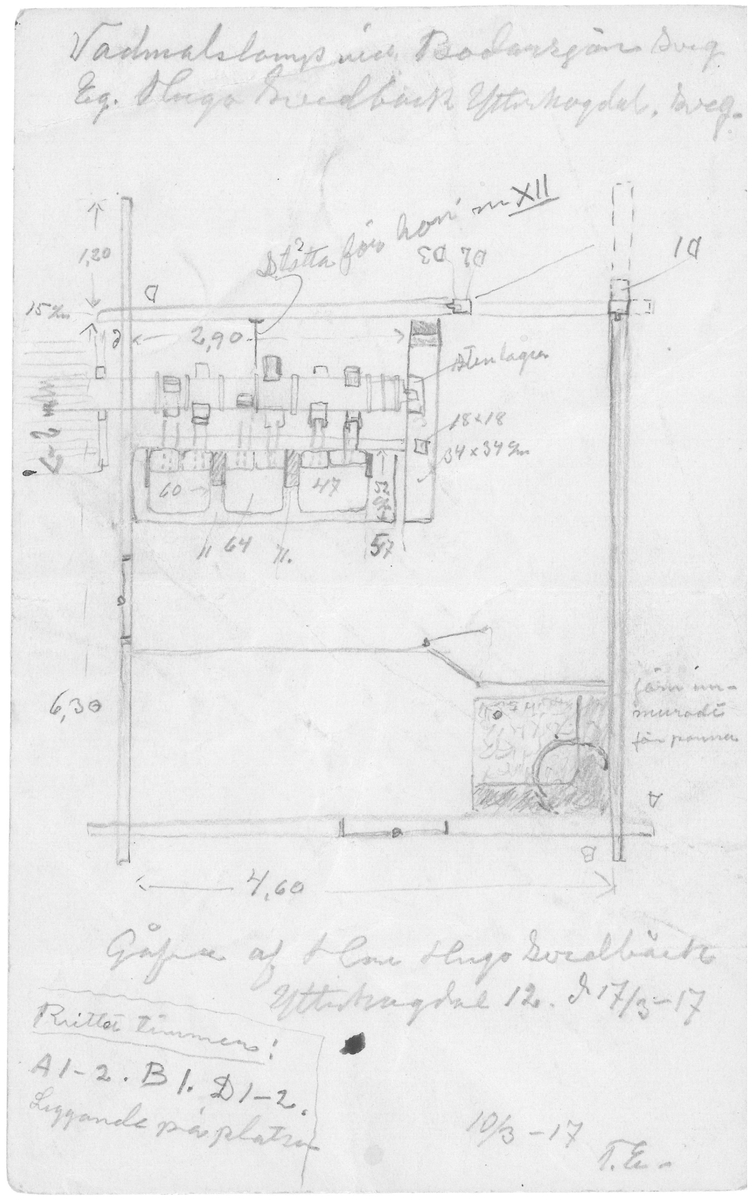 Vadmalstamp vid Bodarsjön Sveg
Eg. Hugo Svedbäck Ytterhogdal, Sveg.
XII
Stötta för
1,20
D
D3
D2
D1
15 c/m
2,90
Stenlager
18×18
34×34 c/m
60
47
52
11
64
11.
57
6,30
Järn in-
murade
för pannan
A
B
4,60
Gåfva af Hugo Svedbäck
Ytterhogdal 12. d 17/3-17
Ruttet timmer!
A1-2. B1. D1-2.
Liggande på platsen
10/3-17
T.E.